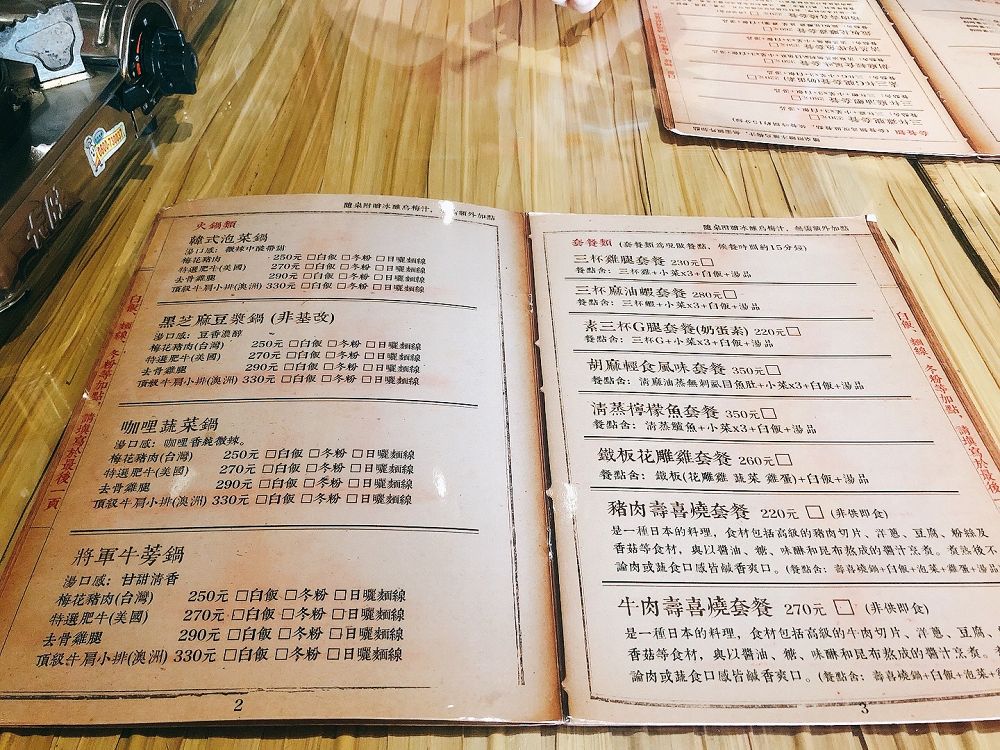 火鍋類
韓式泡菜鍋
湯口感: 微辣中酸帶甜
梅花豬肉 250元 □白飯 □冬粉 □日曬麵線
特選肥牛(美國) 270元 □白飯 □冬粉 □日曬麵線
去骨雞腿 290元 □白飯 □冬粉 □日曬麵線
頂級牛肩小排(澳洲) 330元 □白飯 □冬粉 □日曬麵線
黑芝麻豆漿鍋 (非基改)
湯口感: 豆香濃醇
梅花豬肉(台灣) 250元 □白飯 □冬粉 □日曬麵線
特選肥牛(美國) 270元 □白飯 □冬粉 □日曬麵線
去骨雞腿 290元 □白飯 □冬粉 □日曬麵線
頂級牛肩小排(澳洲) 330元 □白飯 □冬粉 □日曬麵線
咖哩蔬菜鍋
湯口感: 咖哩香純微辣。
梅花豬肉(台灣) 250元 □白飯 □冬粉 □日曬麵線
特選肥牛(美國) 270元 □白飯 □冬粉 □日曬麵線
去骨雞腿 290元 □白飯 □冬粉 □日曬麵線
頂級牛肩小排(澳洲) 330元 □白飯 □冬粉 □日曬麵線
將軍牛蒡鍋
湯口感: 甘甜清香
梅花豬肉(台灣) 250元 □白飯 □冬粉 □日曬麵線
特選肥牛(美國) 270元 □白飯 □冬粉 □日曬麵線
去骨雞腿 290元 □白飯 □冬粉 □日曬麵線
頂級牛肩小排(澳洲) 330元 □白飯 □冬粉 □日曬麵線
白飯、麵線、冬粉等加點, 請填寫於最後一頁
2
隨桌附贈冰釀烏梅汁, 無需額外加點
套餐類 (套餐類為現做餐點, 候餐時間約15分鐘)
三杯雞腿套餐 230元□
餐點含: 三杯雞+小菜x3+白飯+湯品
三杯麻油蝦套餐 280元□
餐點含: 三杯蝦+小菜x3+白飯+湯品
素三杯G腿套餐(奶蛋素) 220元□
餐點含: 三杯G+小菜x3+白飯+湯品
胡麻輕食風味套餐 350元□
餐點含: 清麻油蒸無刺虱目魚肚+小菜x3+白飯+湯品
清蒸檸檬魚套餐 350元□
餐點含: 清蒸鱸魚+小菜x3+白飯+湯品
鐵板花雕雞套餐 260元□
餐點含: 鐵板(花雕雞 蔬菜 雞蛋)+白飯+湯品
豬肉壽喜燒套餐 220元 □ (非供即食)
是一種日本的料理, 食材包括高級的豬肉切片、洋蔥、豆腐、粉絲及
香菇等食材, 與以醬油、糖、味醂和昆布熬成的醬汁烹煮。煮熟後不
論肉或蔬食口感皆鹹香爽口。(餐點含: 壽喜燒鍋+白飯+泡菜+雞蛋+湯品
牛肉壽喜燒套餐 270元 □ (非供即食)
是一種日本的料理, 食材包括高級的牛肉切片、洋蔥、豆腐、
香菇等食材, 與以醬油、糖、味醂和昆布熬成的醬汁烹煮。
論肉或蔬食口感皆鹹香爽口。(餐點含: 壽喜燒鍋+白飯+泡菜+
白飯、麵線、冬粉等加點, 請填寫於最後
3